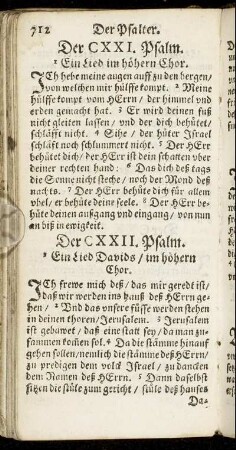 712 Der Psalter.
Der CXXI. Psalm.
1 Ein Lied im höhern Chor.
ICh hebe meine augen auff zu den bergen/
von welchen mir hülffe kompt. 2 Meine
hülffe kompt vom HErrn / der himmel vnd
erden gemacht hat. 3 Er wird deinen fuß
nicht gleiten lassen / vnd der dich behütet/
schläfft nicht. 4 Sihe / der hüter Israel
schläft noch schlummert nicht. 5 Der HErr
behütet dich/ der HErr ist dein schatten vber
deiner rechten hand: 6 Das dich deß tags
die Sonne nicht steche/ noch der Mond deß
nachts. 7 Der HErr behüte dich für allem
vbel/ er behüte deine seele. 8 Der HErr be-
hüte deinen außgang vnd eingang/ von nun
an biß in ewigkeit.
Der CXXII. Psalm.
1 Ein Lied Davids / im höhern
Chor.
ICh frewe mich deß/ das mir geredt ist/
daß wir werden ins hauß deß HErrn ge-
hen/ 2 Vnd das vnsere füsse werden stehen
in deinen thoren/ Jerusalem. 3 Jerusalem
ist gebawet/ daß eine statt sey/ da man zu-
sammen kom̃en sol. 4 Da die stämme hinauf
gehen sollen/ nemlich die stämme deß HErrn/
zu predigen dem volck Israel/ zu dancken
dem Namen deß HErrn. 5 Dann daselbst
sitzen die stüle zum gericht/ stüle deß hauses
Da-